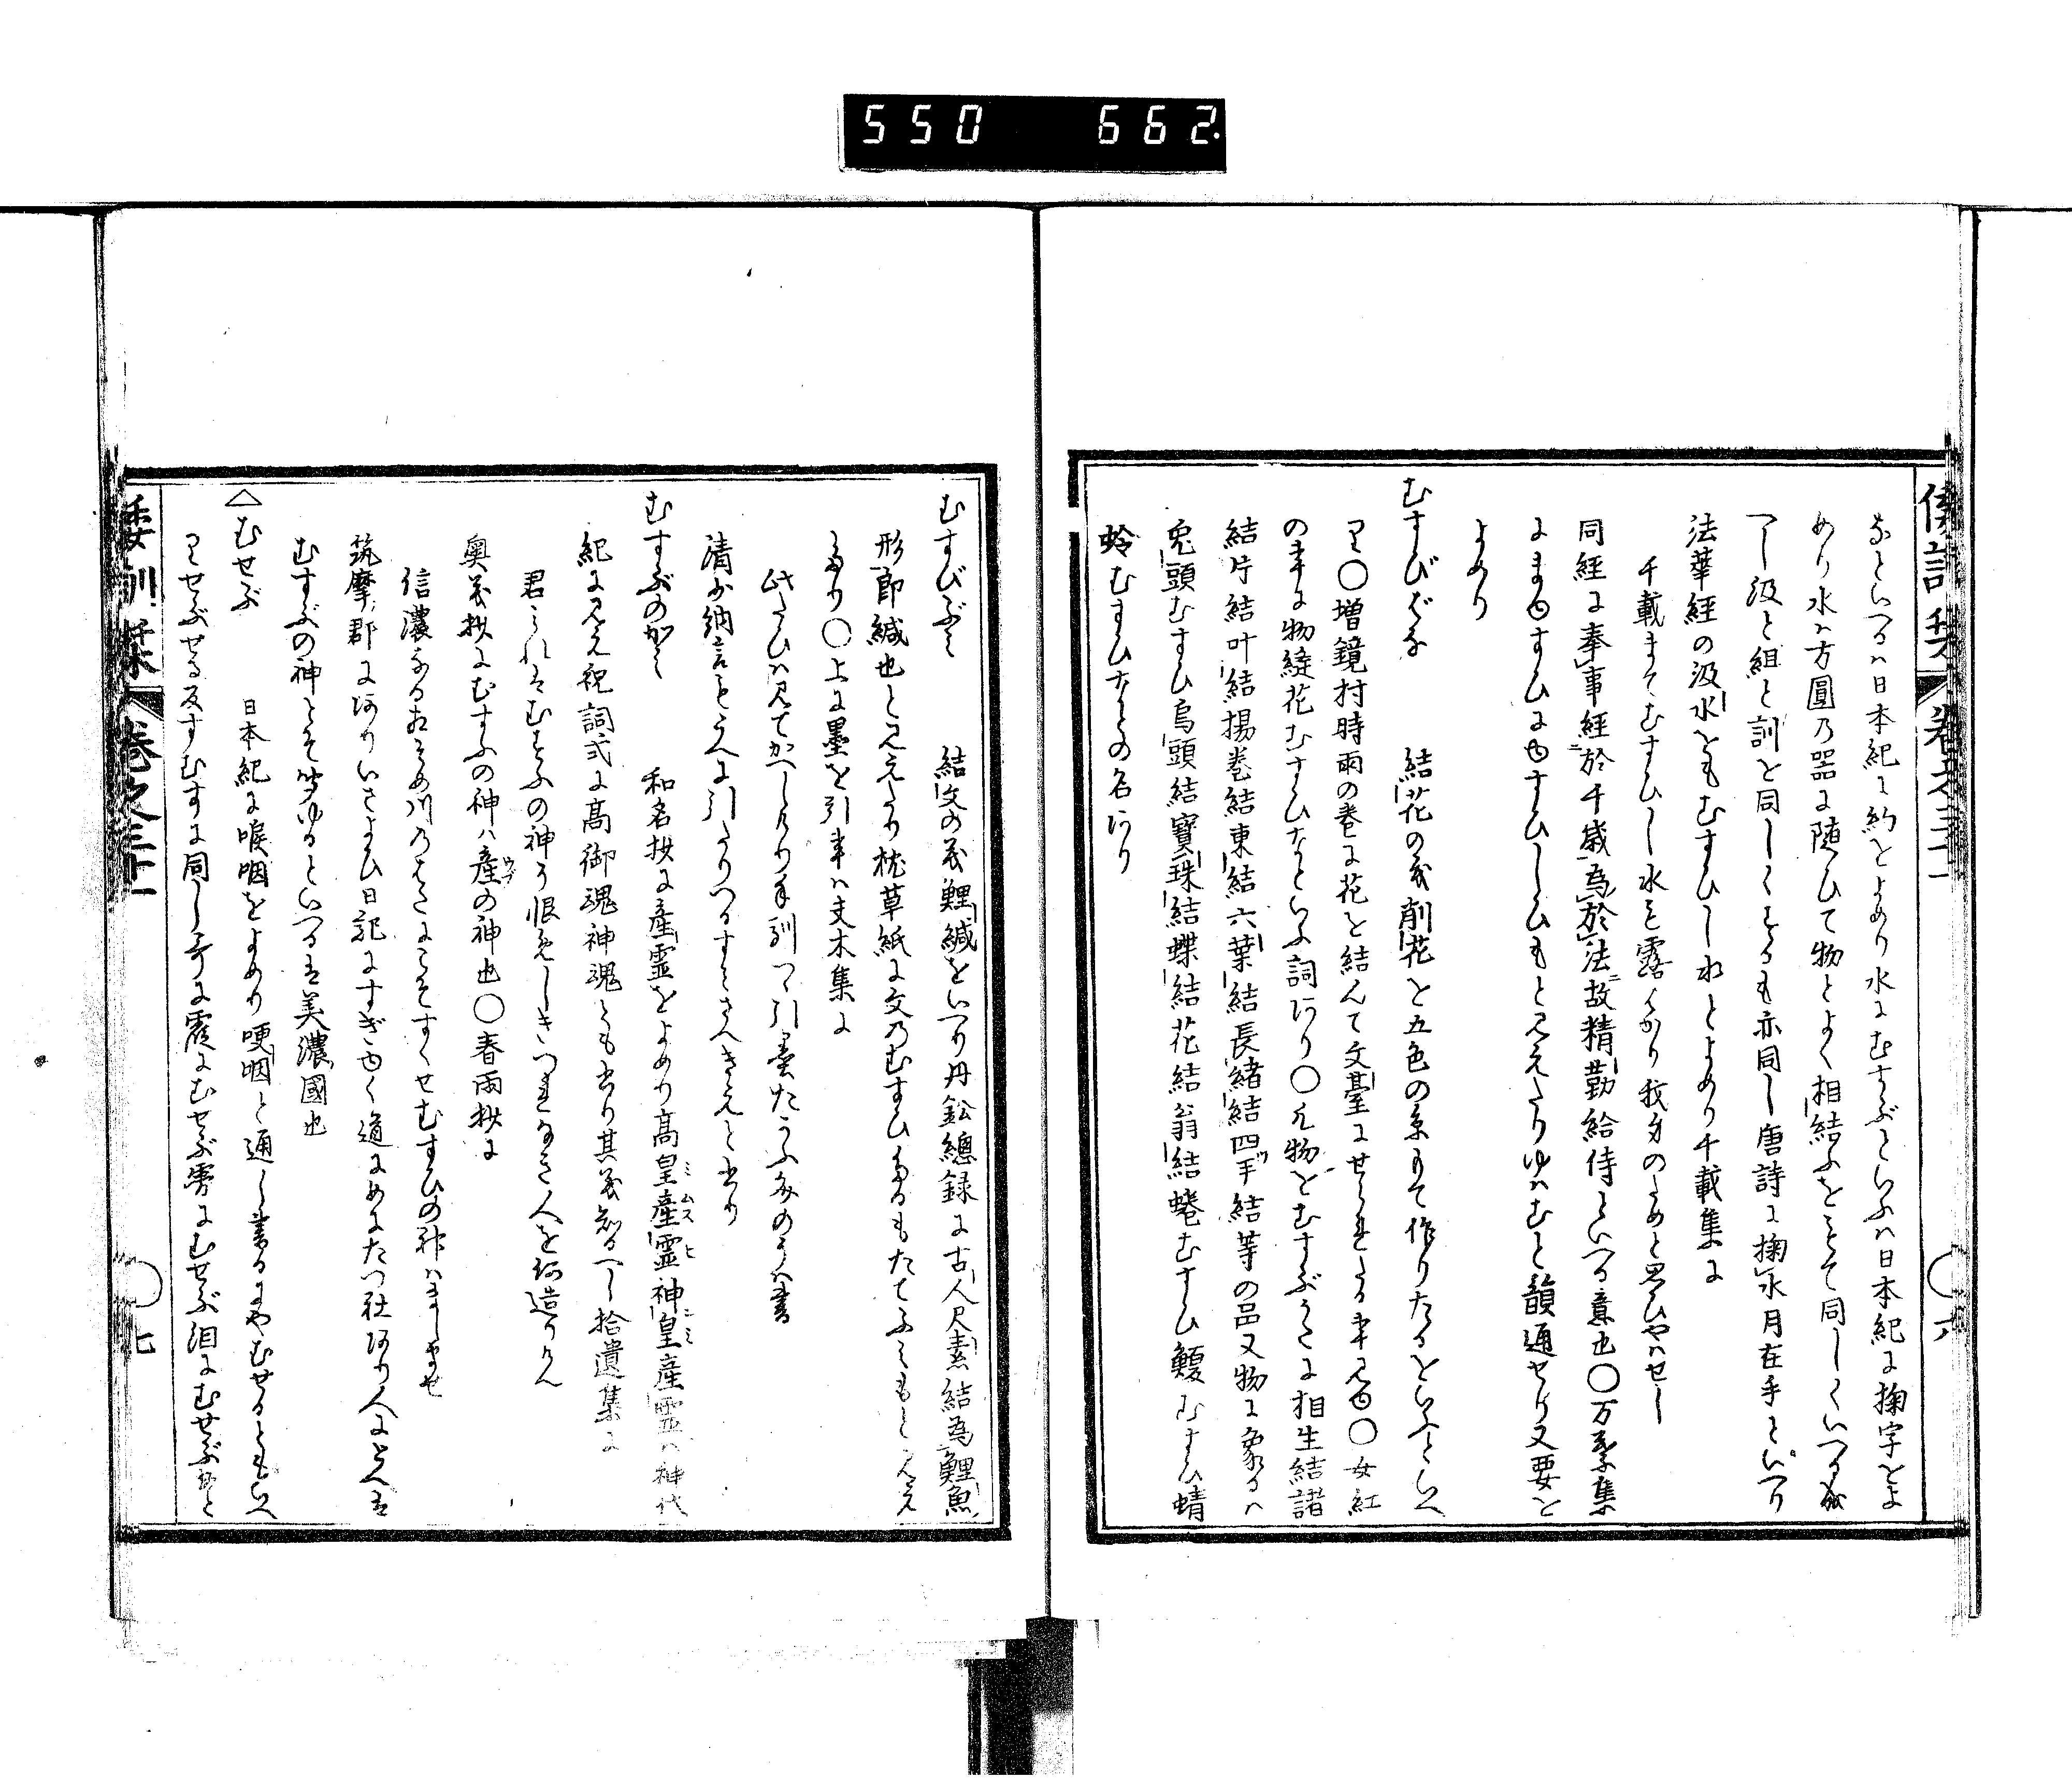 550 662.
なといへるハ日本紀に約をよめり水にむすぶといふハ日本紀に掬字をよ
めり水ハ方圓乃器に随ひて物とよく相結ふをもて同しくいへる成
へし汲と組と訓を同しくするも亦同し唐詩に掬水月在手といへり
法華経の汲水をもむすひし水とよめり千載集に
千載まてむすひし水も露はかり我身のためと思ひやハせし
同経に奉事経於千歳為於法故精勤給侍といへる意也〇万葉集
にまゆすひにゆすひしひもと見えたりゆハむと韻通せり又要を
よめり
むすびばな 結花の義削花を五色の糸もて作りたるをいふといへ
り〇増鏡村時雨の巻に花を結んて文臺にせられたる事見ゆ〇女紅
の事に物縫花むすひなといふ詞あり〇凡物をむすぶうへに相生結諸
結片結叶結揚巻結東結六葉結長緒結四手結等の品又物に象るハ
兎頭むすひ烏頭結寶珠結蝶結花結翁結蜷むすひ鰕むすひ蜻
蛉むすひなとの名あり
倭訓栞 卷之三十一 〇六
むすびぶミ 結文の義鯉緘をいへり丹鉛總録に古人尺素結為鯉魚
形即緘也と見えたり枕草紙に文乃むすひたるもたてふミもと見え
たり〇上に墨を引事ハ夫木集に
此たひハ見てかへしけり手馴つゝ引墨たかふ文のうハ書
清少納言もうへに引たりつるすミさへきえと書り
むすぶのかミ 和名抄に産霊をよめり高皇産霊神皇産霊ハ神代
紀に見え祝詞式に高御魂神魂とも書り其義知へし拾遺集に
君見れハむすふの神そ恨めしきつれなき人を何造りけん
奥義抄にむすふの神ハ産の神也〇春雨抄に
信濃なるあそめ川乃はたにこそすくせむすひの神ハまします
筑摩郡にありいさよひ日記にすぎゆく道にめにたつ社あり人にとへは
むすぶの神とそ聞ゆるといへるは美濃國也
△むせぶ 日本紀に喉咽をよめり哽咽と通し書るにやむせるともいへ
りせぶせる反すむすに同し歌に霞にむせぶ霧にむせぶ泪にむせぶなと
倭訓栞 卷之三十一 〇七